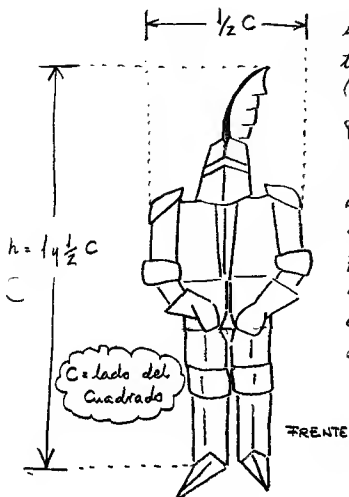 ½ C
h = 1 y ½ C
C = lado del
Cuadrado
FRENTE